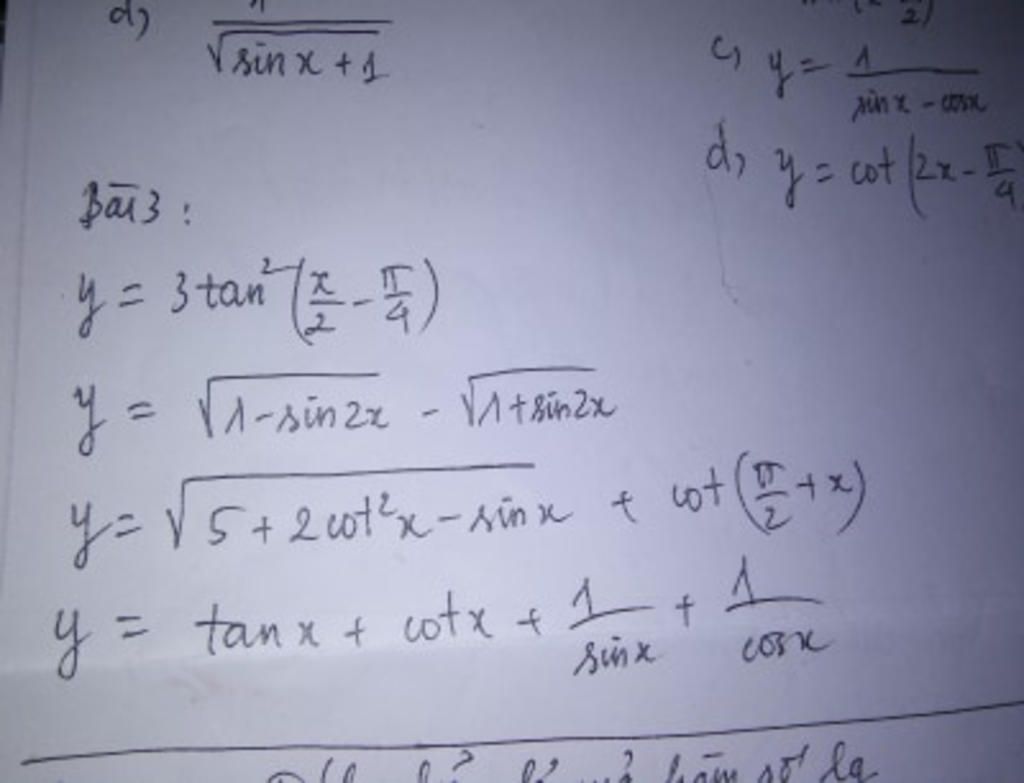 d,
√sin x + 1
c, y = 1 / sin x - cos x
d, y = cot (2x - π/4)
Bài 3 :
y = 3 tan² (x/2 - π/4)
y = √1 - sin 2x - √1 + sin 2x
y = √5 + 2 cot² x - sin x + cot (π/2 + x)
y = tan x + cot x + 1/sin x + 1/cos x